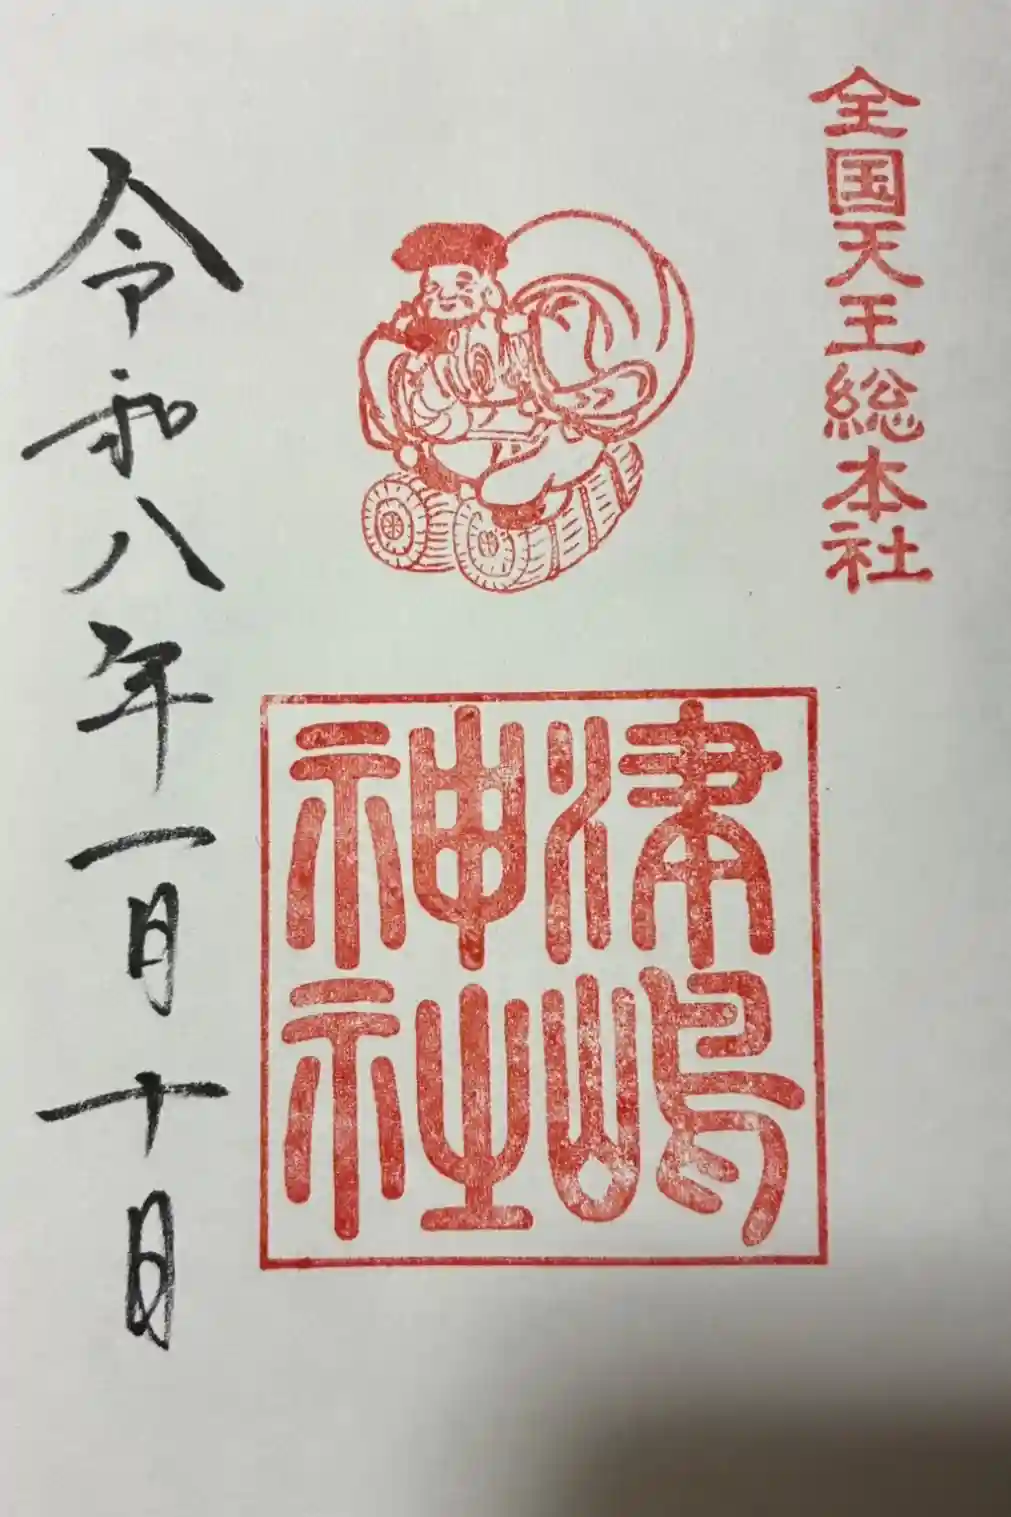 全国天王総本社
津嶋
神社
令和八年一月十日